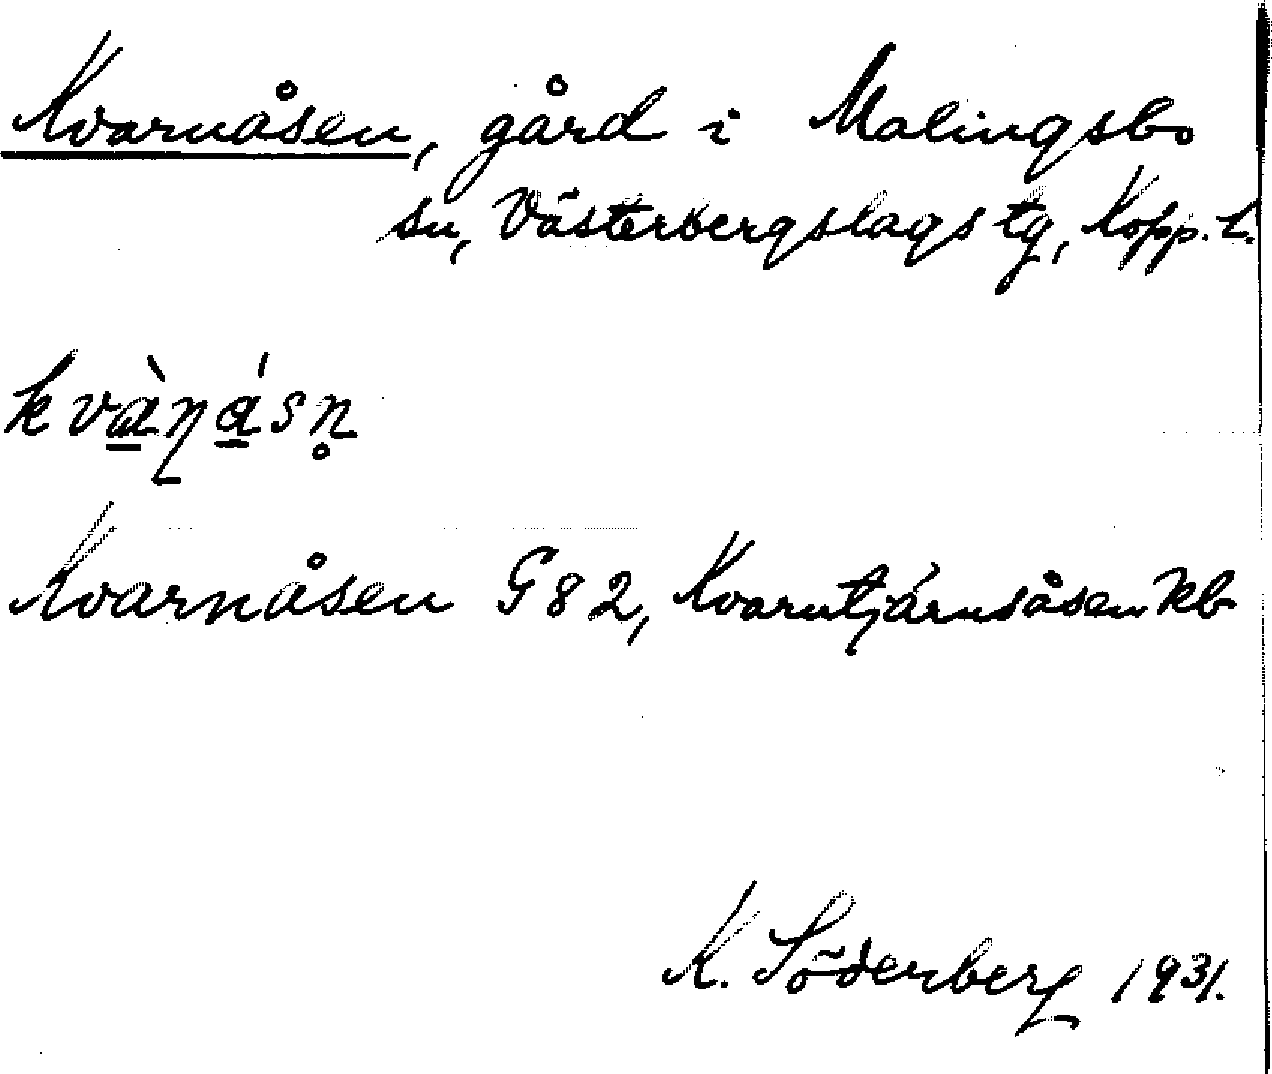 Kvarnåsen, gård i Malingsbo
sn, Västerbergslags tg, Kopp. l.
kvàɳásn̥
Kvarnåsen G82, Kvarntjärnsåsen kb
K. Söderberg 1931.